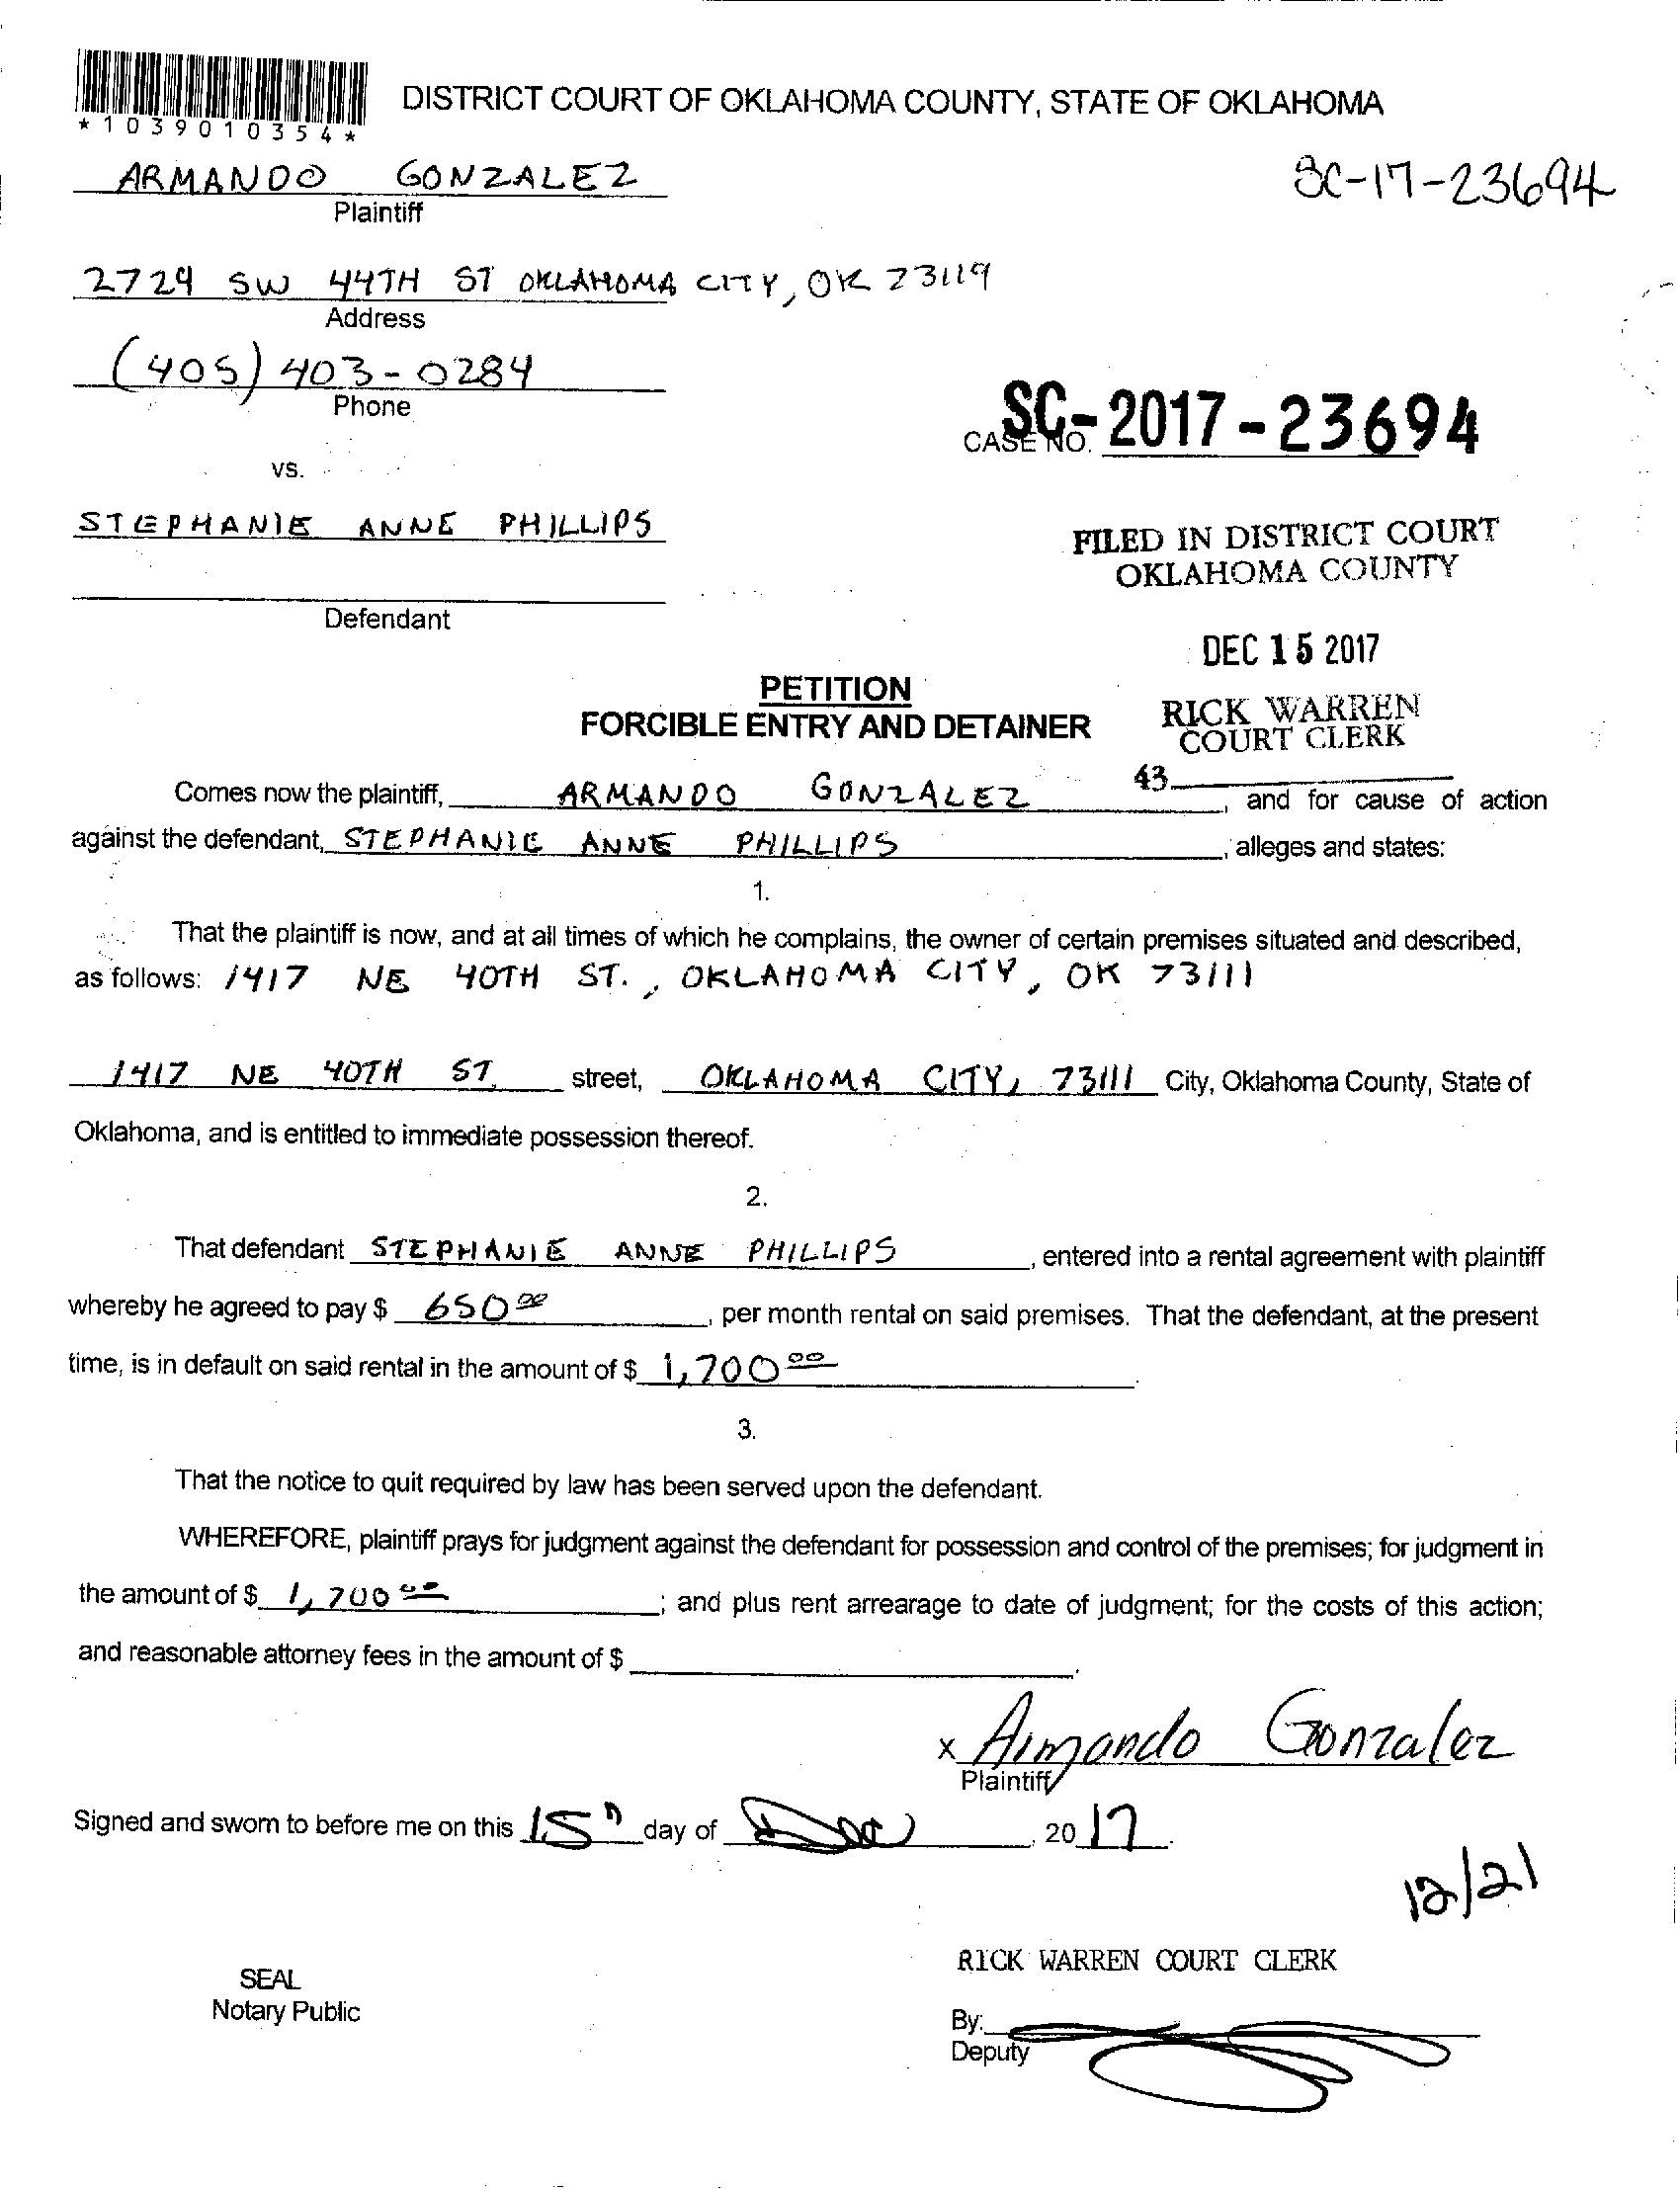 *1039010354*
DISTRICT COURT OF OKLAHOMA COUNTY, STATE OF OKLAHOMA
ARMANDO GONZALEZ
SC-17-23694
Plaintiff
2729 SW 44TH ST OKLAHOMA CITY, OK 73119
Address
(405) 403-0284
Phone
CASE NO. SC-2017-23694
VS.
STEPHANIE ANNE PHILLIPS
FILED IN DISTRICT COURT
OKLAHOMA COUNTY
Defendant
DEC 15 2017
PETITION
FORCIBLE ENTRY AND DETAINER
RICK WARREN
COURT CLERK
43
Comes now the plaintiff, ARMANDO GONZALEZ, and for cause of action
against the defendant, STEPHANIE ANNE PHILLIPS, alleges and states:
1.
That the plaintiff is now, and at all times of which he complains, the owner of certain premises situated and described,
as follows: 1417 NE 40TH ST., OKLAHOMA CITY, OK 73111
1417 NE 40TH ST. street, OKLAHOMA CITY, 73111 City, Oklahoma County, State of
Oklahoma, and is entitled to immediate possession thereof.
2.
That defendant STEPHANIE ANNE PHILLIPS, entered into a rental agreement with plaintiff
whereby he agreed to pay $ 650 00, per month rental on said premises. That the defendant, at the present
time, is in default on said rental in the amount of $ 1,700 00.
3.
That the notice to quit required by law has been served upon the defendant.
WHEREFORE, plaintiff prays for judgment against the defendant for possession and control of the premises; for judgment in
the amount of $ 1,700 00; and plus rent arrearage to date of judgment; for the costs of this action;
and reasonable attorney fees in the amount of $.
x Armando Gonzalez
Plaintiff
Signed and sworn to before me on this 15th day of Dec, 2017.
12/21
RICK WARREN COURT CLERK
SEAL
Notary Public
By:
Deputy